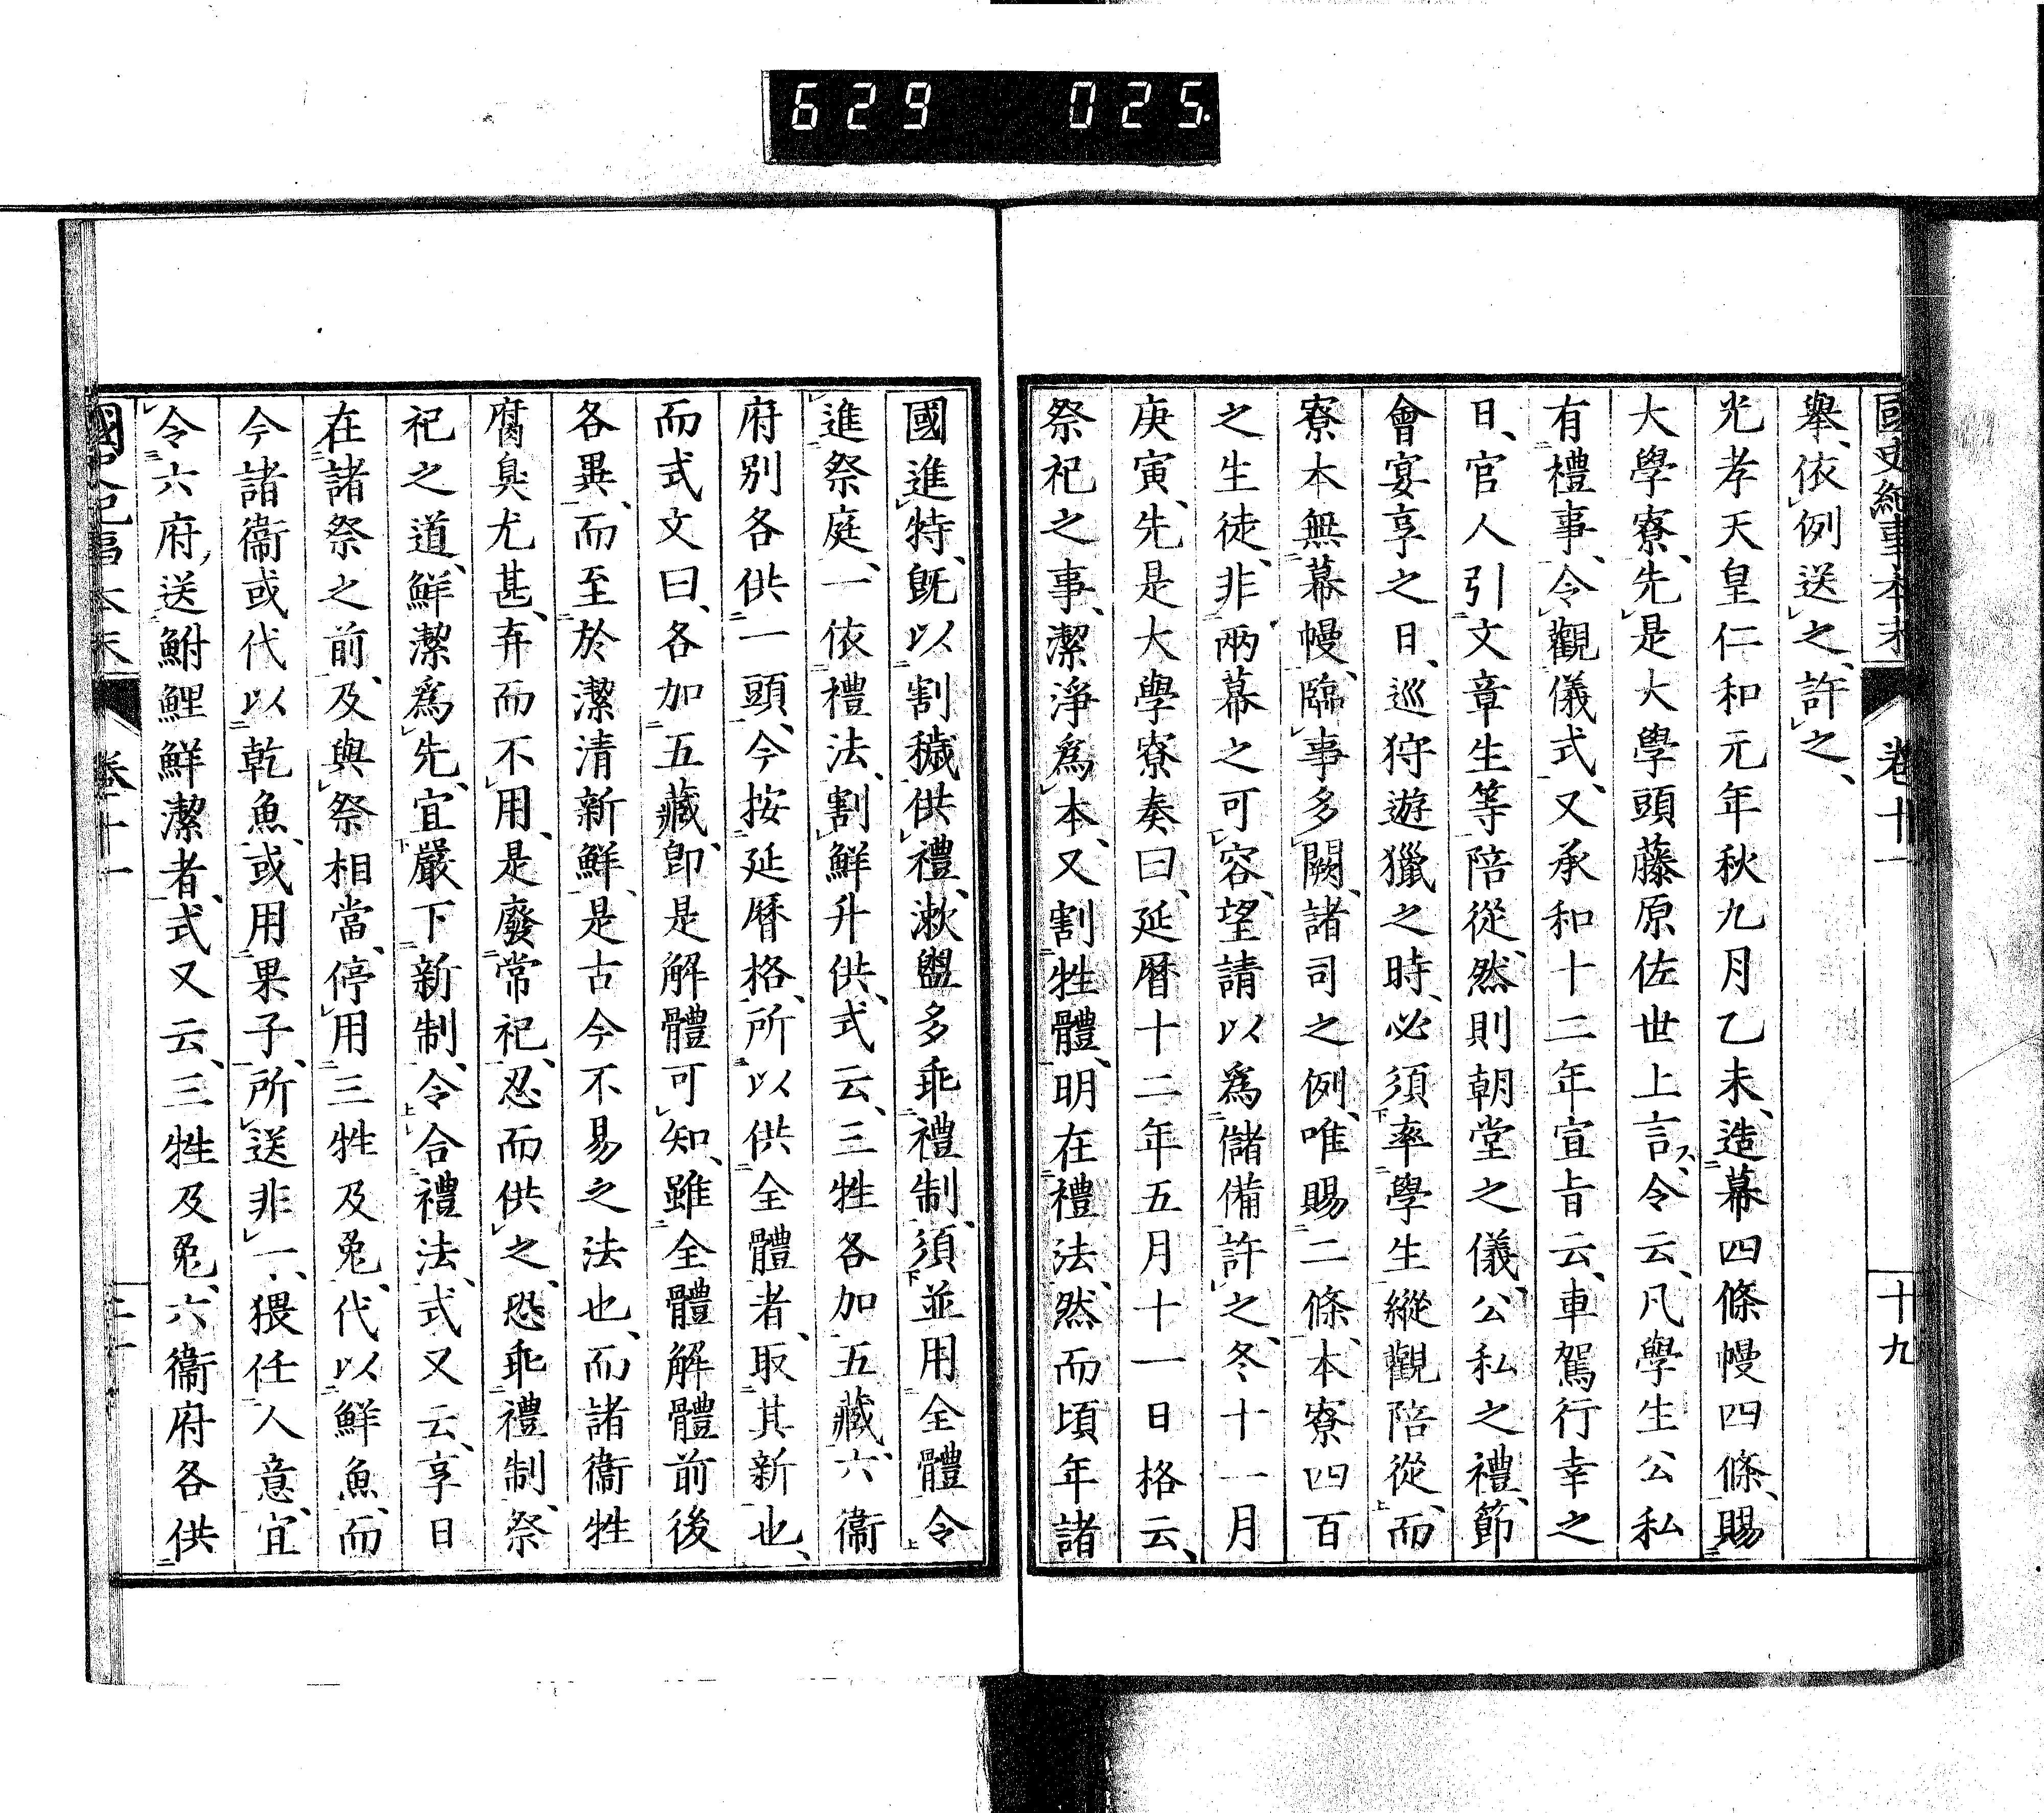 629 025
國史紀事本末 卷十一 十九
擧、依例送之、許之、
光孝天皇仁和元年秋九月乙未、造幕四條幔四條、賜
大學寮、先是大學頭藤原佐世上言、令云、凡學生公私
有禮事、令觀儀式、又承和十二年宣旨云、車駕行幸之
日、官人引文章生等陪從、然則朝堂之儀、公私之禮、節
會宴享之日、巡狩遊獵之時、必須率學生縱觀陪從、而
寮本無幕幔、臨事多闕、諸司之例、唯賜二條、本寮四百
之生徒、非兩幕之可容、望請以爲儲備、許之、冬十一月
庚寅、先是大學寮奏曰、延曆十二年五月十一日格云、
祭祀之事、潔淨爲本、又割牲體、明在禮法、然而頃年諸
國進特、既以割穢供禮、漱盥多乖禮制、須並用全體令
進祭庭、一依禮法、割鮮升供、式云、三牲各加五藏、六衞
府別各供一頭、今按延曆格、所以供全體者、取其新也、
而式文曰、各加五藏、卽是解體可知、雖全體解體前後
各異、而至於潔清新鮮、是古今不易之法也、而諸衞牲
腐臭尤甚、弃而不用、是廢常祀、忍而供之、恐乖禮制、祭
祀之道、鮮潔爲先、宜嚴下新制、令合禮法、式又云、享日
在諸祭之前、及與祭相當、停用三牲及兔、代以鮮魚、而
今諸衞或代以乾魚、或用果子、所送非一、猥任人意、宜
令六府、送鮒鯉鮮潔者、式又云、三牲及兔、六衞府各供
國史紀事本末 卷十一 二十